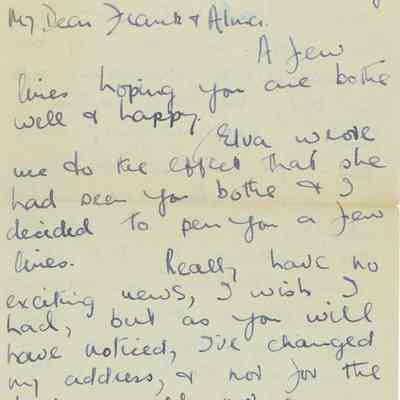 My Dear Frank & Alma.
A few
lines hoping you are bothe
well & happy.
Elva wrote
me to the effect that she
had seen you bothe & I
decided to pen you a few
lines. Really have no
exciting news, I wish I
had, but as you will
have noticed, I've changed
my address, & not for the